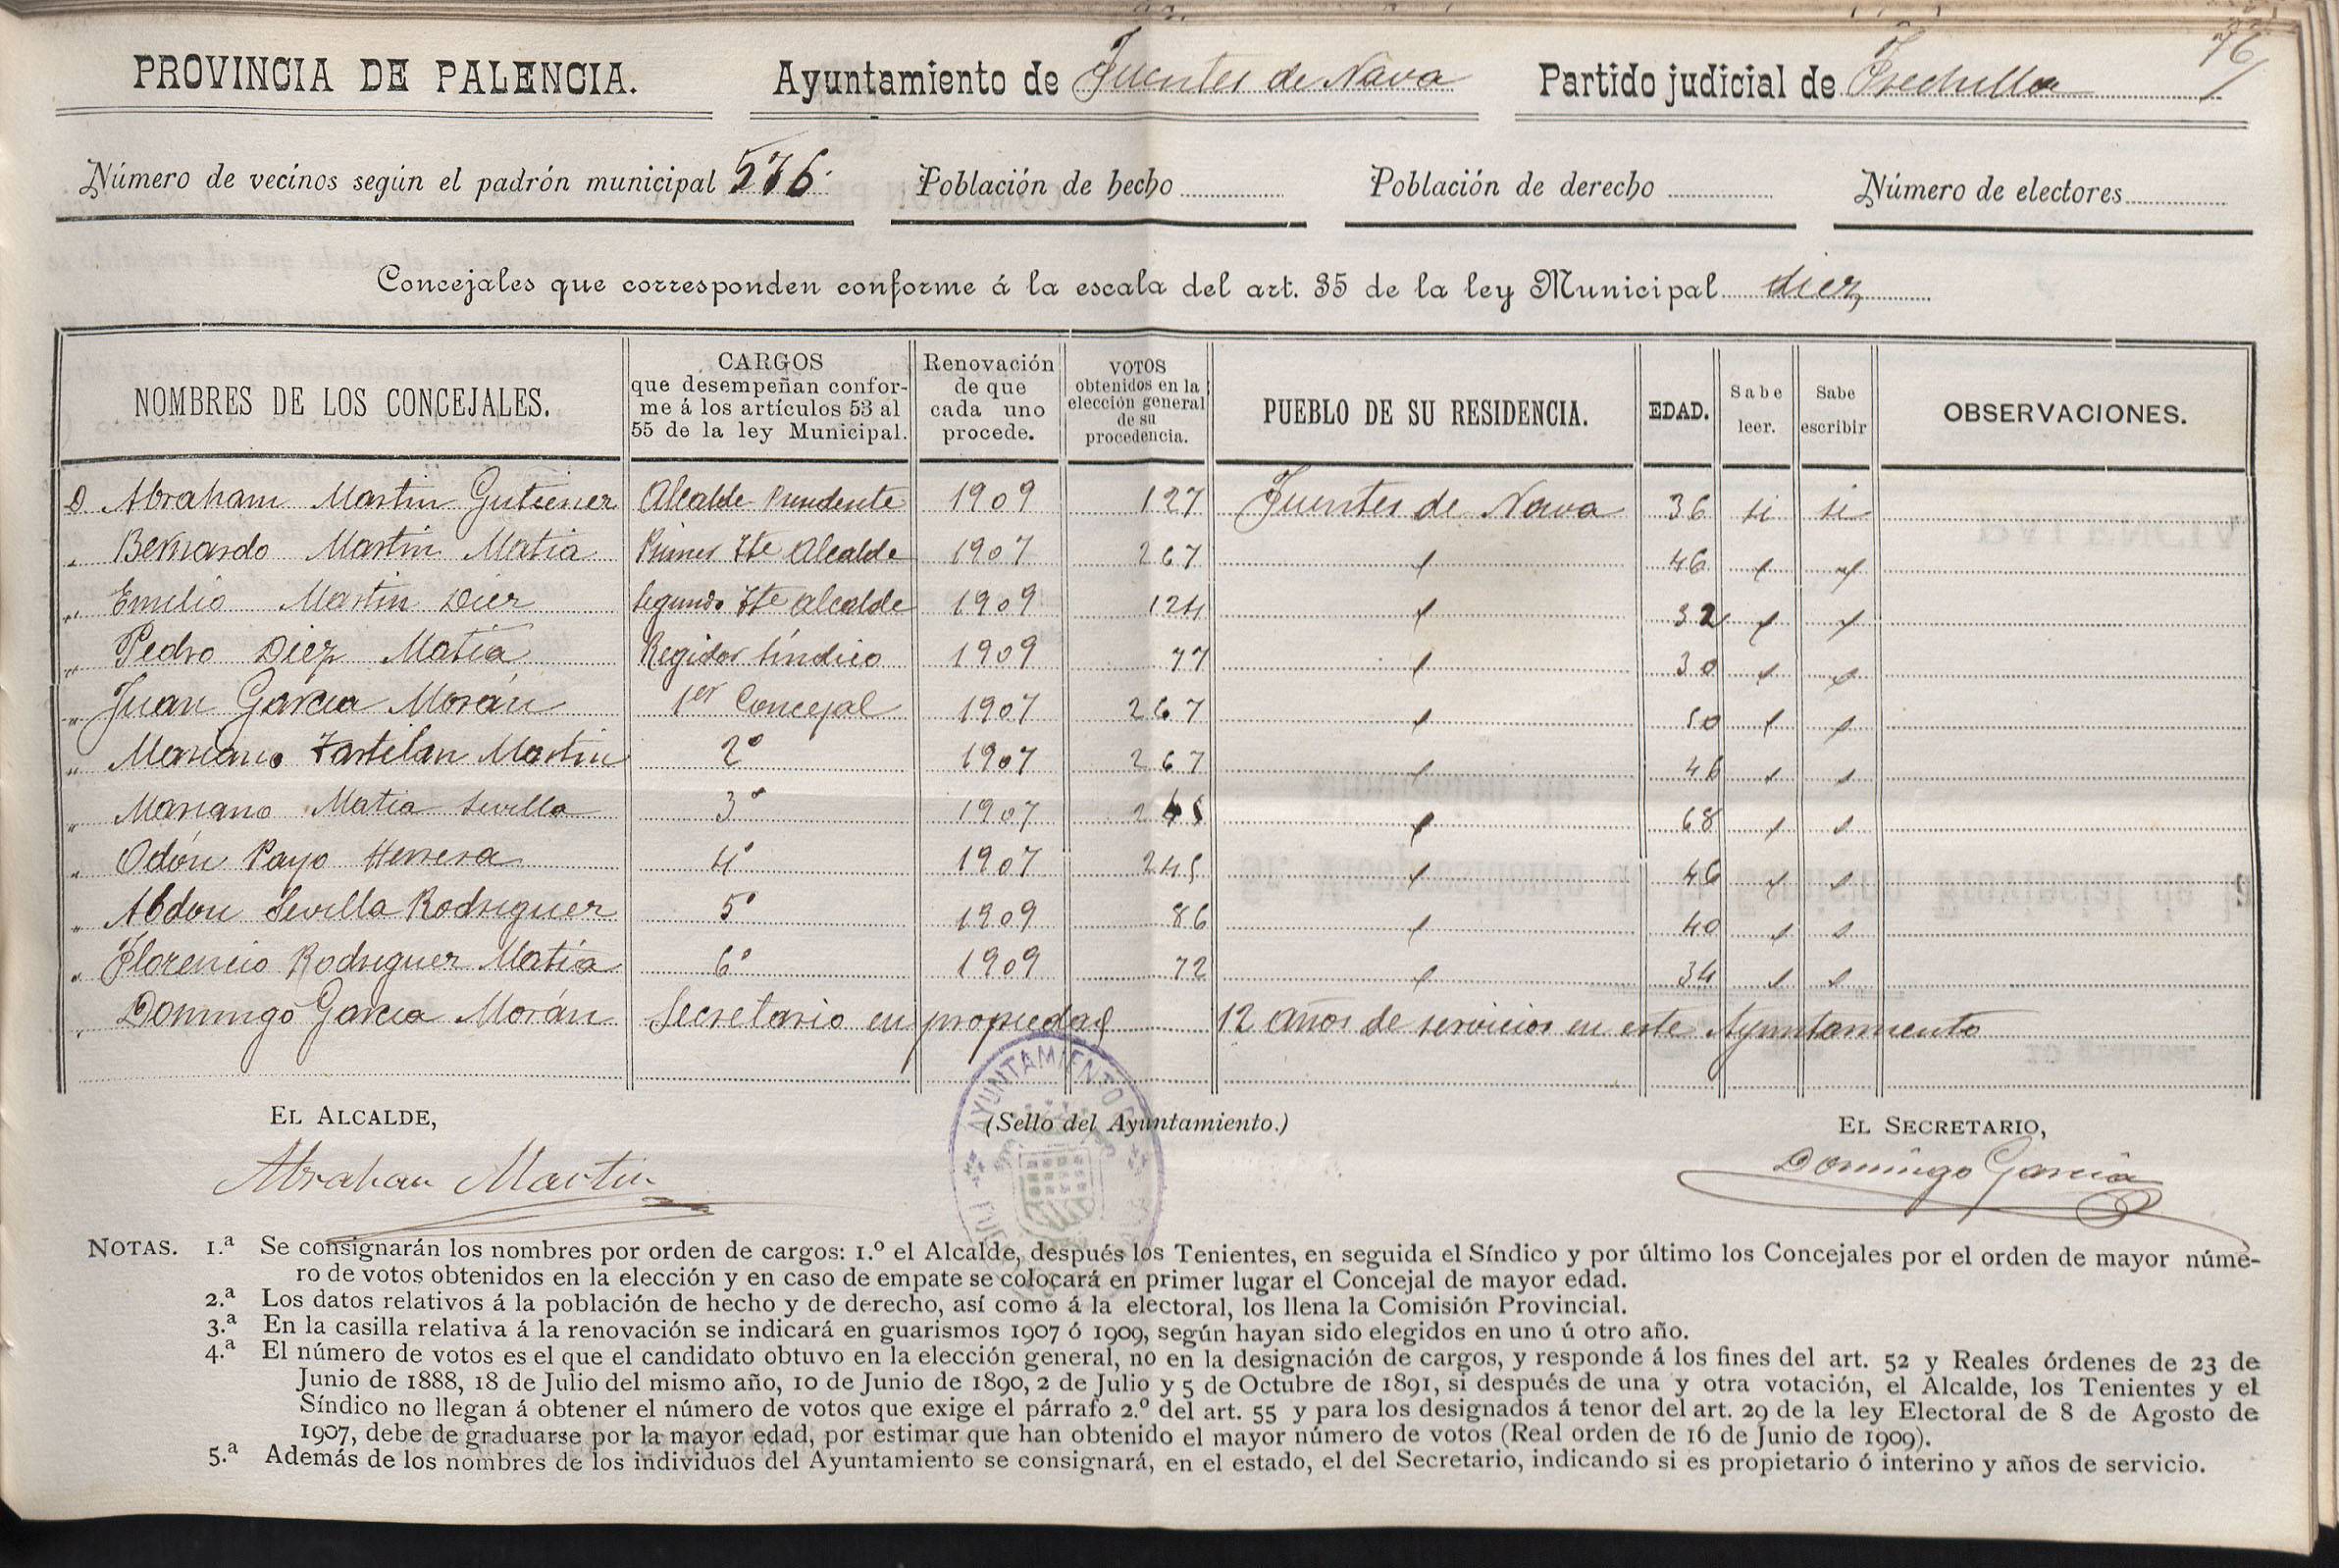 76
PROVINCIA DE PALENCIA. Ayuntamiento de Fuentes de Nava Partido judicial de Frechilla
Número de vecinos según el padrón municipal 576. Población de hecho Población de derecho Número de electores
Concejales que corresponden conforme á la escala del art. 35 de la ley Municipal diez
NOMBRES DE LOS CONCEJALES. CARGOS que desempeñan confor-me á los artículos 53 al 55 de la ley Municipal. Renovación de que cada uno procede. VOTOS obtenidos en la elección general de su procedencia. PUEBLO DE SU RESIDENCIA. EDAD. Sabe leer. Sabe escribir OBSERVACIONES.
D Abraham Martin Gutierrez Alcalde Presidente 1909 127 Fuentes de Nava 36 si si
" Bernardo Martin Matia Primer Tte Alcalde 1907 267 " 46 " "
" Emilio Martin Diez Segundo Tte Alcalde 1909 124 " 32 " "
" Pedro Diez Matia Regidor Síndico 1909 77 " 30 " "
" Juan Garcia Morán 1er Concejal 1907 267 " 50 " "
" Mariano Martin 2º 1907 267 " 46 " "
" Mariano Matia Sevilla 3º 1907 245 " 68 " "
" Odón Payo Herrera 4º 1907 245 " 46 " "
" Abdon Sevilla Rodriguez 5º 1909 86 " 40 " "
" Florencio Rodriguez Matía 6º 1909 72 " 34 " "
" Domingo Garcia Morán Secretario en propiedad 12 años de servicios en este Ayuntamiento
EL ALCALDE, (Sello del Ayuntamiento.) EL SECRETARIO,
AYUNTAMIENTO
Abraham Martin Domingo Garcia
NOTAS. 1.ª Se consignarán los nombres por orden de cargos: 1.º el Alcalde, después los Tenientes, en seguida el Síndico y por último los Concejales por el orden de mayor núme-
ro de votos obtenidos en la elección y en caso de empate se colocará en primer lugar el Concejal de mayor edad.
2.ª Los datos relativos á la población de hecho y de derecho, así como á la electoral, los llena la Comisión Provincial.
3.ª En la casilla relativa á la renovación se indicará en guarismos 1907 ó 1909, según hayan sido elegidos en uno ú otro año.
4.ª El número de votos es el que el candidato obtuvo en la elección general, no en la designación de cargos, y responde á los fines del art. 52 y Reales órdenes de 23 de
Junio de 1888, 18 de Julio del mismo año, 10 de Junio de 1890, 2 de Julio y 5 de Octubre de 1891, si después de una y otra votación, el Alcalde, los Tenientes y el
Síndico no llegan á obtener el número de votos que exige el párrafo 2.º del art. 55 y para los designados á tenor del art. 29 de la ley Electoral de 8 de Agosto de
1907, debe de graduarse por la mayor edad, por estimar que han obtenido el mayor número de votos (Real orden de 16 de Junio de 1909).
5.ª Además de los nombres de los individuos del Ayuntamiento se consignará, en el estado, el del Secretario, indicando si es propietario ó interino y años de servicio.